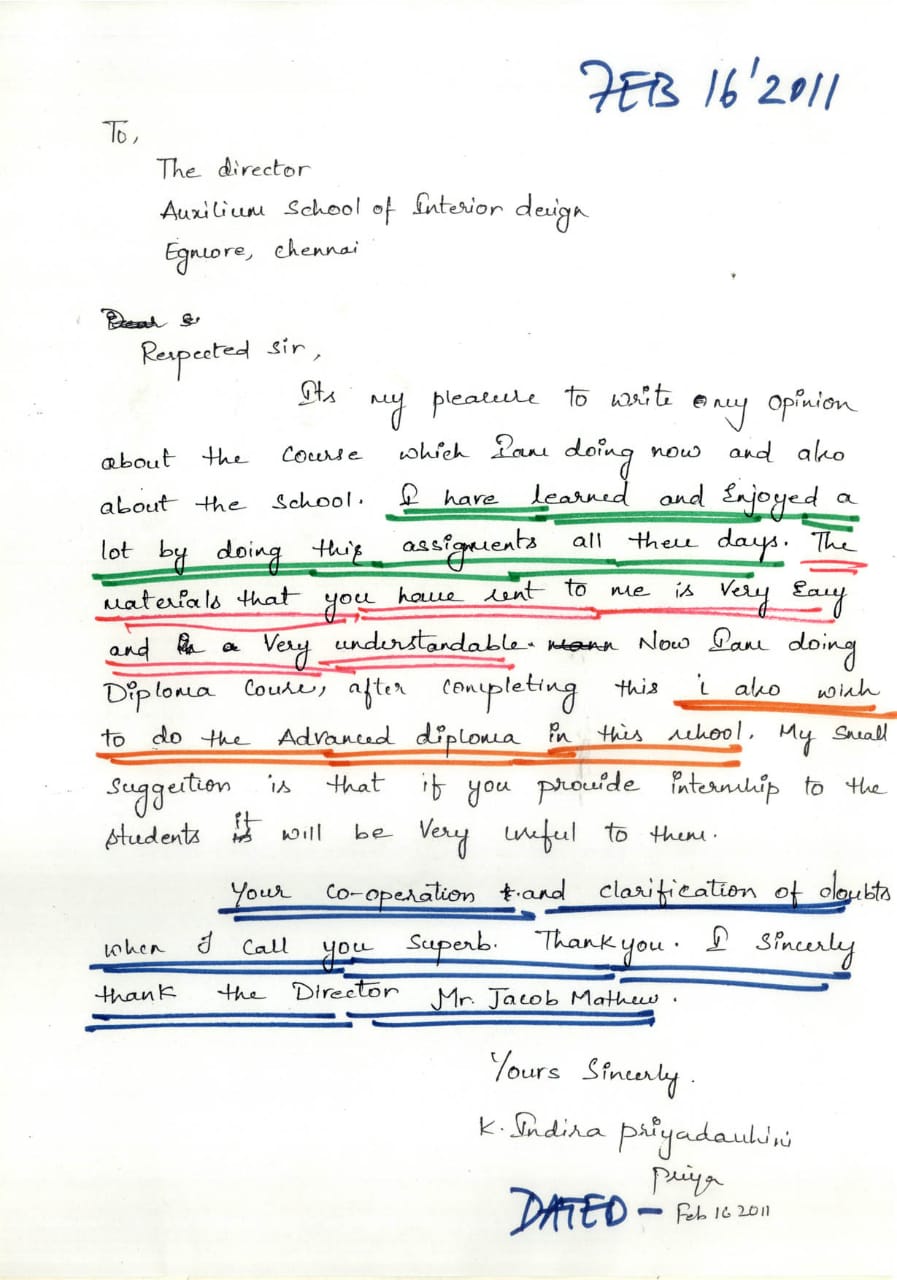 FEB 16'2011
To,
The director
Auxilium School of Interior design
Egmore, Chennai
Respected Sir,
Its my pleasure to write my opinion
about the course which I am doing now and also
about the school. I have learned and Enjoyed a
lot by doing this assigments all these days. The
materials that you have sent to me is very Easy
and a very understandable. Now I am doing
Diploma Course, after completing this i also wish
to do the Advanced diploma in this school. My Small
Suggestion is that if you provide internship to the
students it will be very useful to them.
Your co-operation and clarification of doubts
when I call you Superb. Thank you. I Sincerly
thank the Director Mr. Jacob Mathew.
Yours Sincerly.
K. Indira Priyadarshini
Priya
DATED – Feb 16 2011